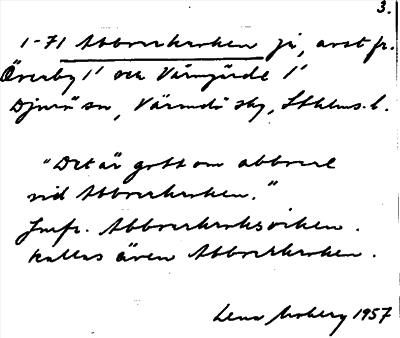 3.
1-71 Abborrkroken på, avst fr.
Överby 1' och Värmgärde 1'
Djurö sn, Värmdö skg, Sthlms l.
"Det är gott om abborre
vid Abborrkroken."
Jmfr. Abborrkroksviken.
Kallas även Abborrkroken.
Lena Moberg 1957